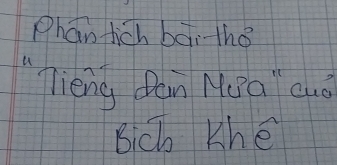 Phân tích bài thơ
"Tiếng Đàn Mưa" của
Bích Khê